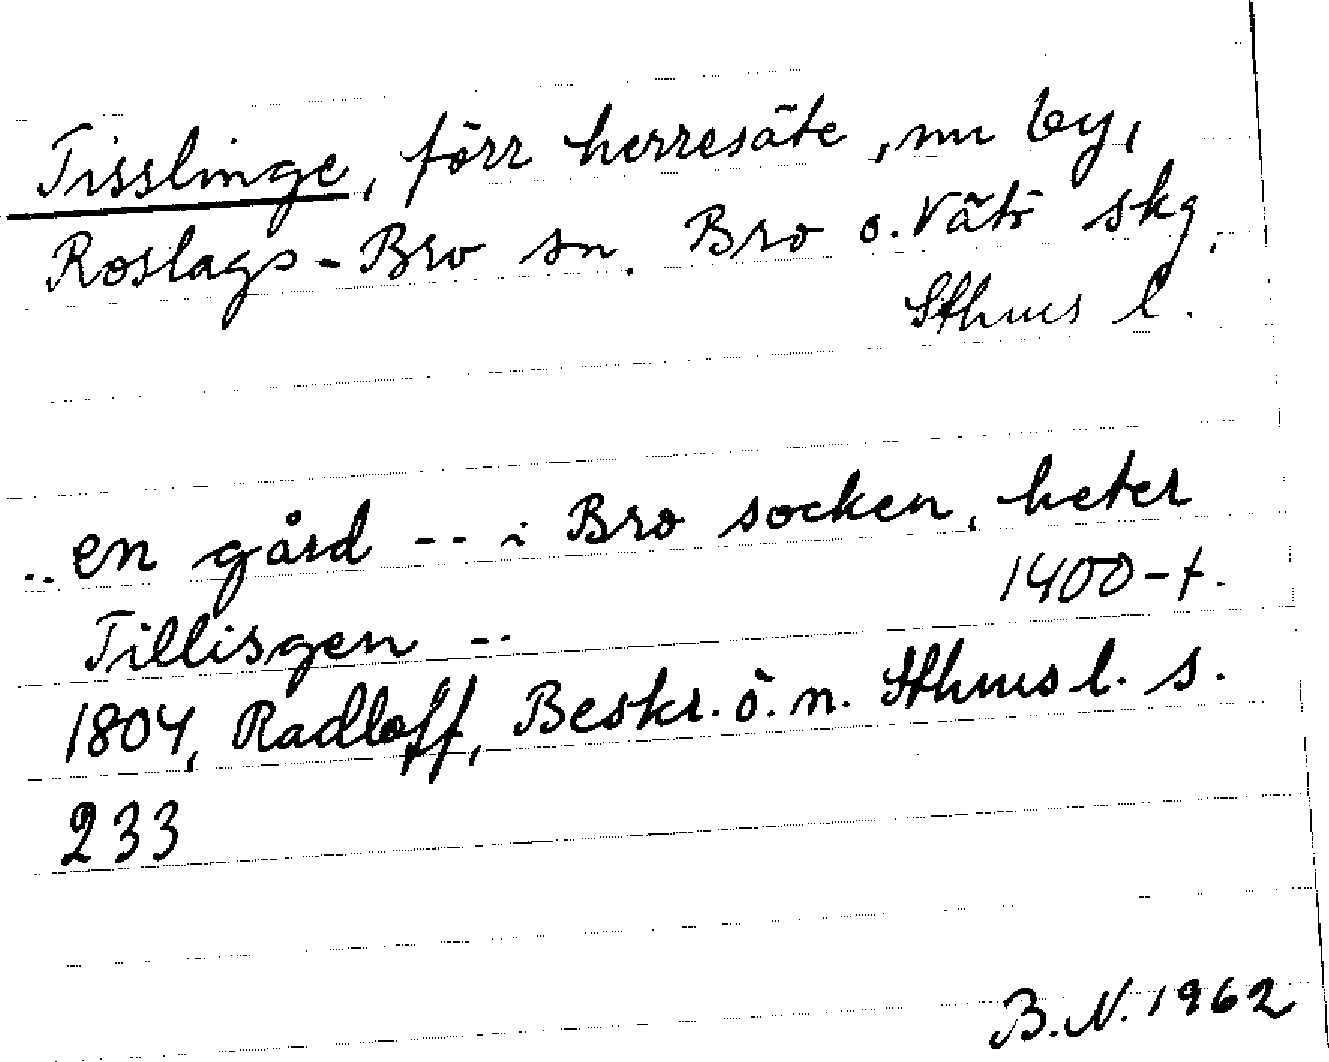 Tisslinge, förr herresäte, nu by,
Roslags-Bro sn. Bro o. Vätö skg,
Sthms l.
.. en gård -- i Bro socken, heter
1400-t.
Tillisgen --
1804, Radloff, Beskr. ö. n. Sthms l. s.
233
B.N. 1962